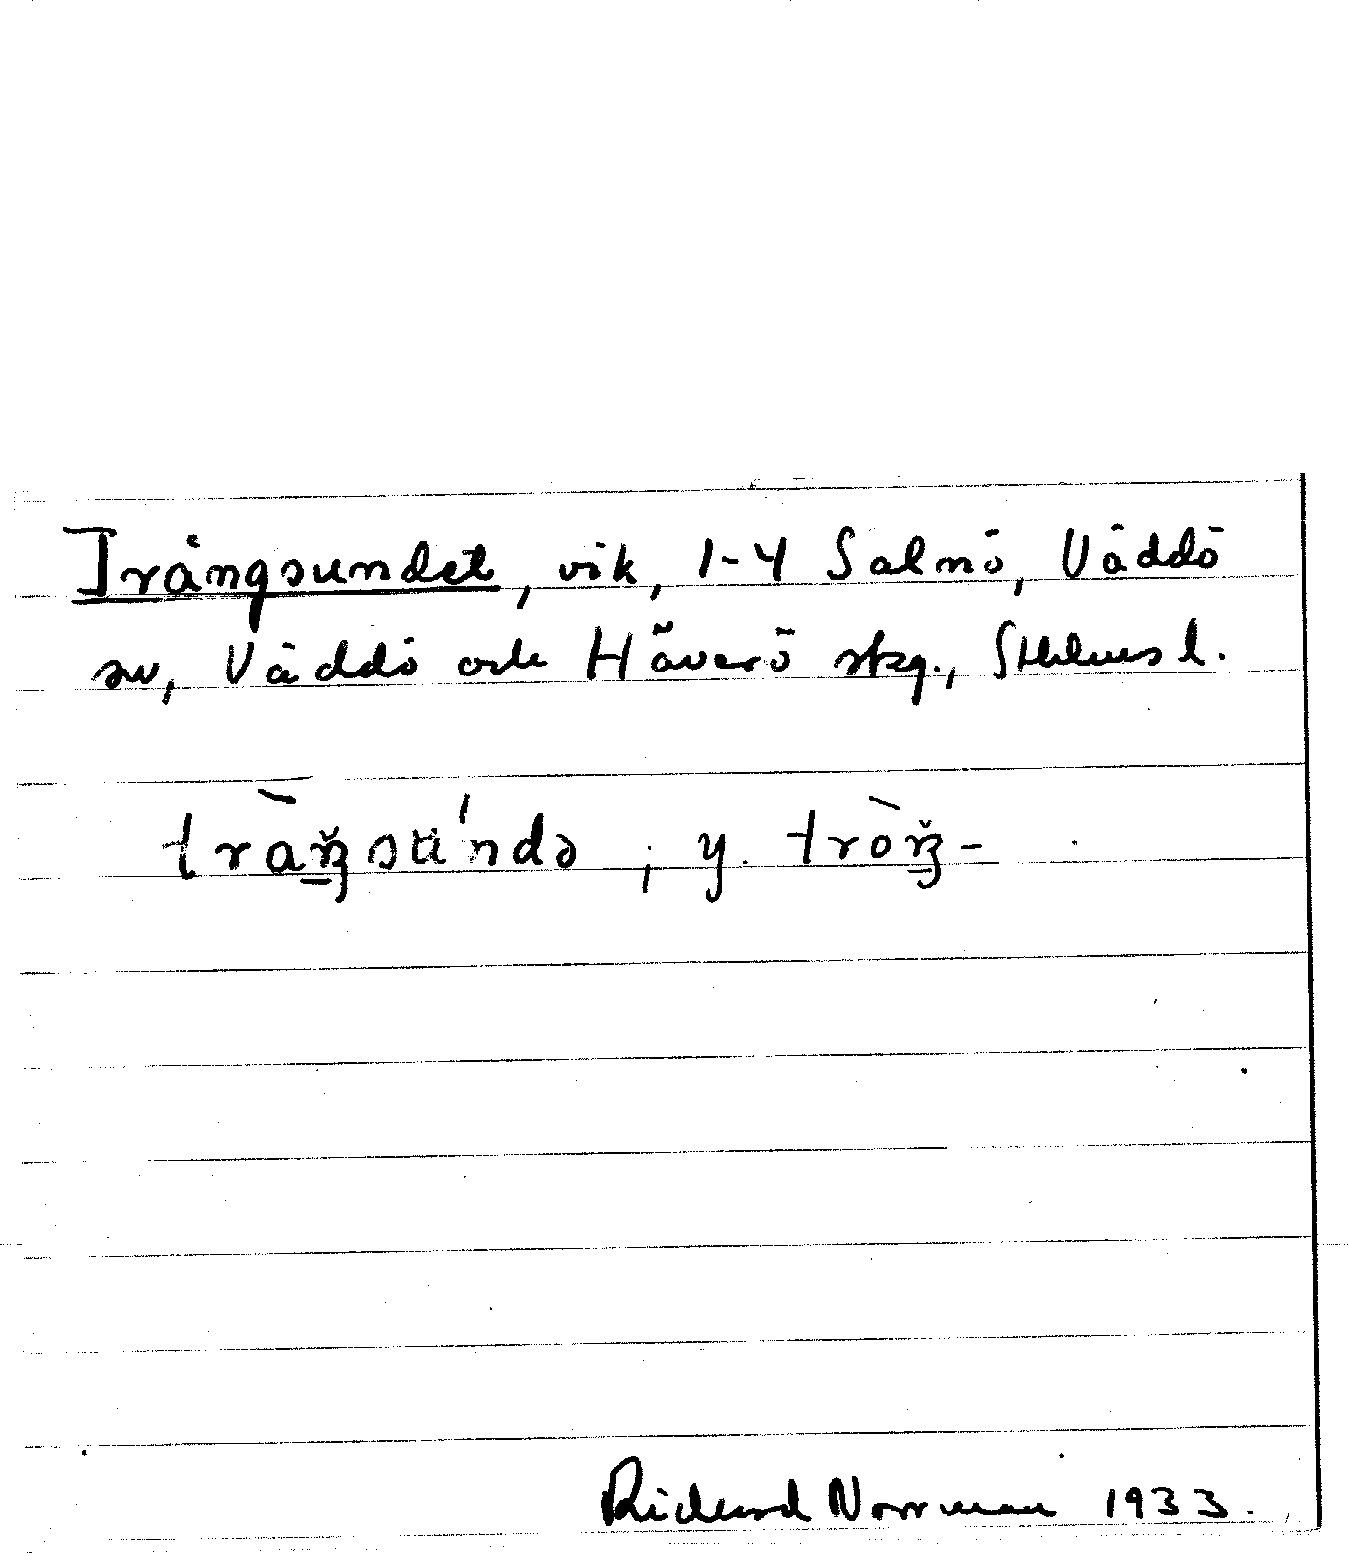 Trångsundet, vik, 1-4 Salnö, Väddö
sn, Väddö och Häverö skg., Sthlms l.
tràŋsún̄də ; y. tròŋ-
Richard Norrman 1933.